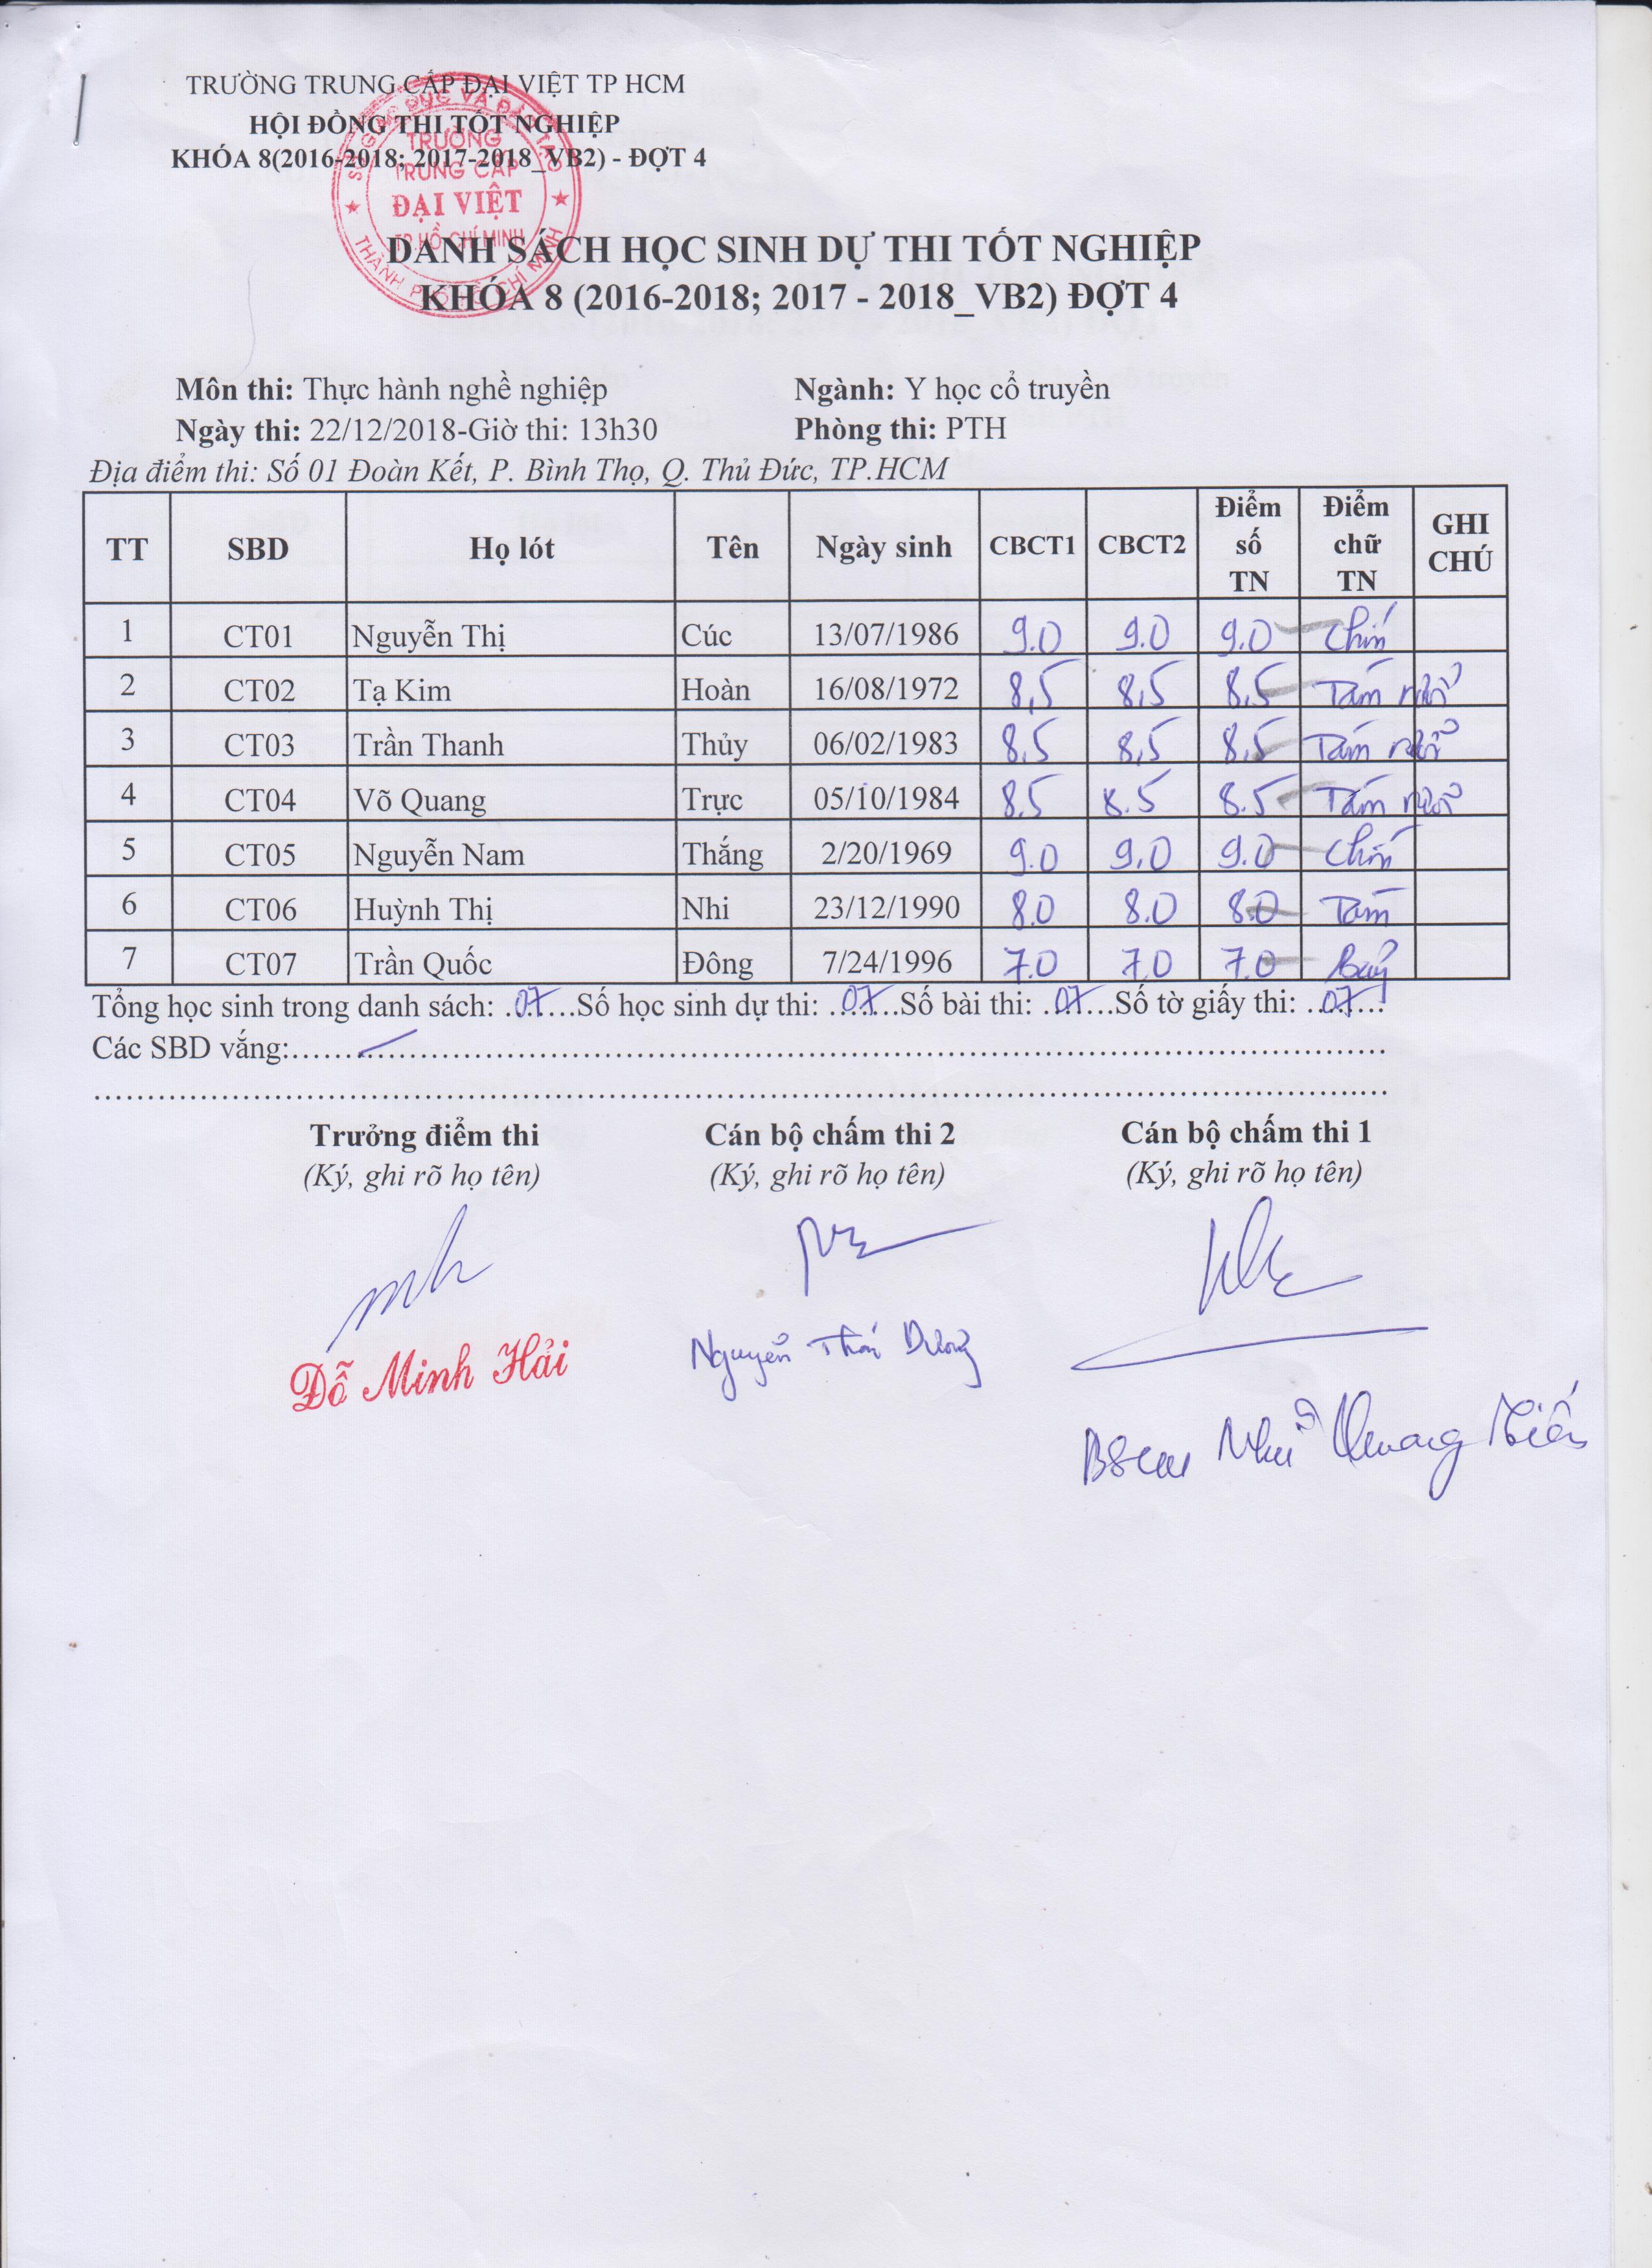 TRƯỜNG TRUNG CẤP ĐẠI VIỆT TP HCM
HỘI ĐỒNG THI TỐT NGHIỆP
KHÓA 8(2016-2018; 2017-2018_VB2) - ĐỢT 4
SỞ GIÁO DỤC VÀ ĐÀO TẠO
TRƯỜNG
TRUNG CẤP
ĐẠI VIỆT
TP.HỒ CHÍ MINH
THÀNH PHỐ HỒ CHÍ MINH
DANH SÁCH HỌC SINH DỰ THI TỐT NGHIỆP
KHÓA 8 (2016-2018; 2017 - 2018_VB2) ĐỢT 4
Môn thi: Thực hành nghề nghiệp Ngành: Y học cổ truyền
Ngày thi: 22/12/2018-Giờ thi: 13h30 Phòng thi: PTH
Địa điểm thi: Số 01 Đoàn Kết, P. Bình Thọ, Q. Thủ Đức, TP.HCM
TT SBD Họ lót Tên Ngày sinh CBCT1 CBCT2 Điểm số TN Điểm chữ TN GHI CHÚ
1 CT01 Nguyễn Thị Cúc 13/07/1986 9.0 9.0 9.0 Chín
2 CT02 Tạ Kim Hoàn 16/08/1972 8,5 8,5 8,5 Tám rưỡi
3 CT03 Trần Thanh Thủy 06/02/1983 8,5 8,5 8,5 Tám rưỡi
4 CT04 Võ Quang Trực 05/10/1984 8.5 8.5 8.5 Tám rưỡi
5 CT05 Nguyễn Nam Thắng 2/20/1969 9.0 9.0 9.0 Chín
6 CT06 Huỳnh Thị Nhi 23/12/1990 8.0 8.0 8.0 Tám
7 CT07 Trần Quốc Đông 7/24/1996 7.0 7.0 7.0 Bảy
Tổng học sinh trong danh sách: ..07.....Số học sinh dự thi: ..07.....Số bài thi: ..07.....Số tờ giấy thi: ..07.....
Các SBD vắng:
Trưởng điểm thi Cán bộ chấm thi 2 Cán bộ chấm thi 1
(Ký, ghi rõ họ tên) (Ký, ghi rõ họ tên) (Ký, ghi rõ họ tên)
Đỗ Minh Hải Nguyễn Thái Dương
Quang